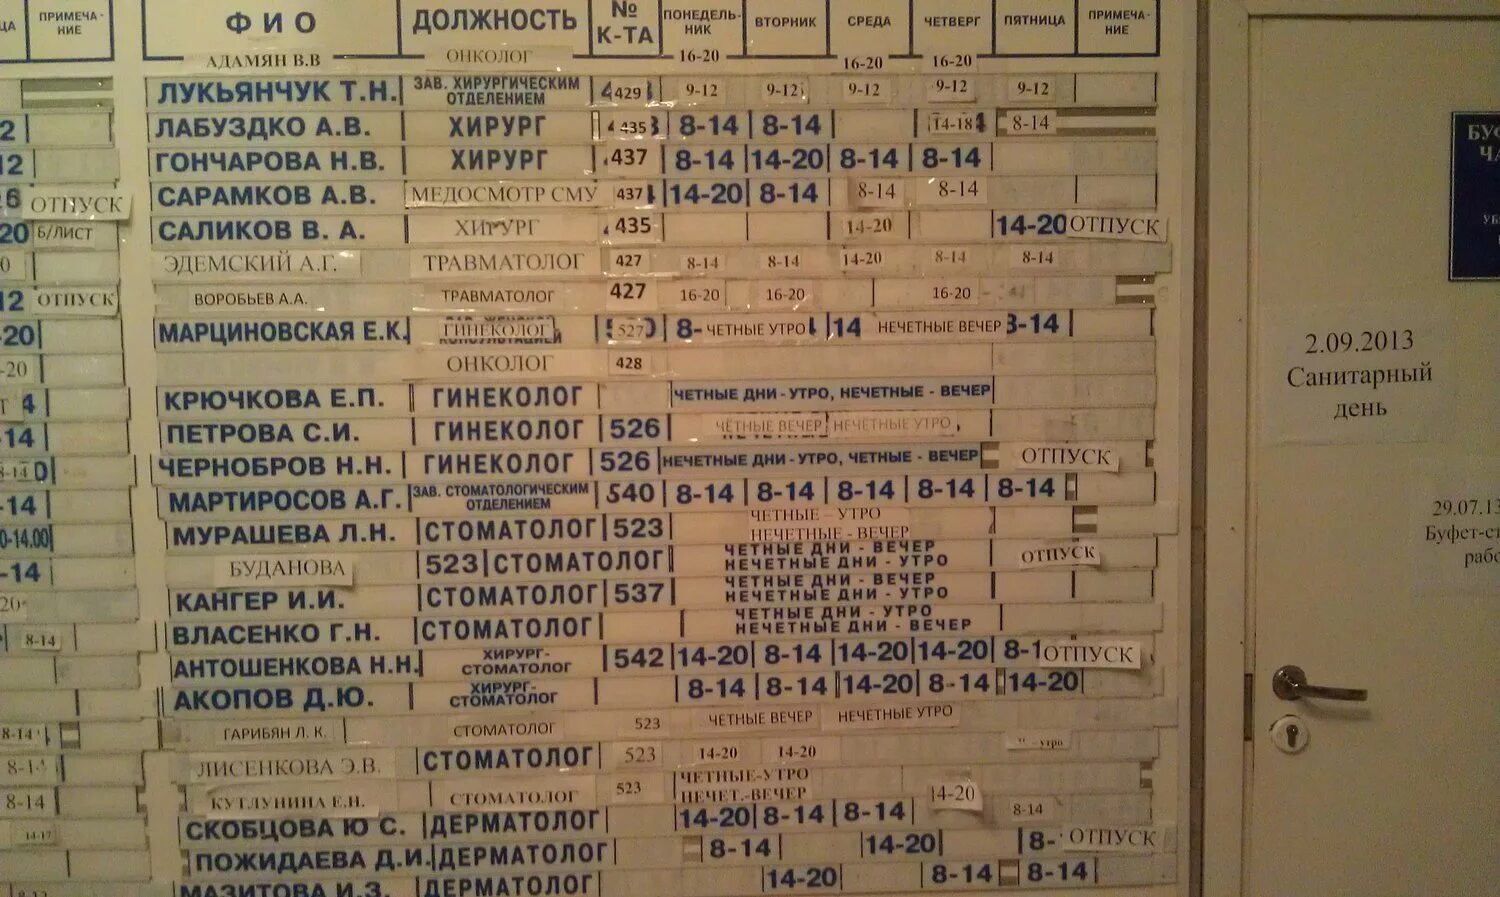 ЦА ПРИМЕЧА-НИЕ ФИО ДОЛЖНОСТЬ № К-ТА ПОНЕДЕЛЬ-НИК ВТОРНИК СРЕДА ЧЕТВЕРГ ПЯТНИЦА ПРИМЕЧА-НИЕ
АДАМЯН В.В ОНКОЛОГ 16-20 16-20 16-20
ЛУКЬЯНЧУК Т.Н. ЗАВ. ХИРУРГИЧЕСКИМ ОТДЕЛЕНИЕМ 429 9-12 9-12 9-12 9-12 9-12
ЛАБУЗДКО А.В. ХИРУРГ 435 8-14 8-14 14-18 8-14
ГОНЧАРОВА Н.В. ХИРУРГ 437 8-14 14-20 8-14 8-14
ОТПУСК САРАМКОВ А.В. МЕДОСМОТР СМУ 437 14-20 8-14 8-14 8-14
20 Б/ЛИСТ САЛИКОВ В. А. ХИРУРГ 435 14-20 14-20 ОТПУСК
ЭДЕМСКИЙ А.Г. ТРАВМАТОЛОГ 427 8-14 8-14 14-20 8-14 8-14
12 ОТПУСК ВОРОБЬЕВ А.А. ТРАВМАТОЛОГ 427 16-20 16-20 16-20
-20 МАРЦИНОВСКАЯ Е.К. ГИНЕКОЛОГ 527 8- ЧЕТНЫЕ УТРО 14 НЕЧЕТНЫЕ ВЕЧЕР 8-14
-20 ОНКОЛОГ 428
4 КРЮЧКОВА Е.П. ГИНЕКОЛОГ ЧЕТНЫЕ ДНИ - УТРО, НЕЧЕТНЫЕ - ВЕЧЕР
-14 ПЕТРОВА С.И. ГИНЕКОЛОГ 526 ЧЁТНЫЕ ВЕЧЕР НЕЧЕТНЫЕ УТРО
8-14 ЧЕРНОБРОВ Н.Н. ГИНЕКОЛОГ 526 НЕЧЕТНЫЕ ДНИ - УТРО, ЧЕТНЫЕ - ВЕЧЕР ОТПУСК
-14 МАРТИРОСОВ А.Г. ЗАВ. СТОМАТОЛОГИЧЕСКИМ ОТДЕЛЕНИЕМ 540 8-14 8-14 8-14 8-14 8-14
0-14.00 МУРАШЕВА Л.Н. СТОМАТОЛОГ 523 ЧЕТНЫЕ - УТРО НЕЧЕТНЫЕ - ВЕЧЕР
-14 БУДАНОВА 523 СТОМАТОЛОГ ЧЕТНЫЕ ДНИ - ВЕЧЕР НЕЧЕТНЫЕ ДНИ - УТРО ОТПУСК
20 КАНГЕР И.И. СТОМАТОЛОГ 537 ЧЕТНЫЕ ДНИ - ВЕЧЕР НЕЧЕТНЫЕ ДНИ - УТРО
8-14 ВЛАСЕНКО Г.Н. СТОМАТОЛОГ ЧЕТНЫЕ ДНИ - УТРО НЕЧЕТНЫЕ ДНИ - ВЕЧЕР
АНТОШЕНКОВА Н.Н. ХИРУРГ-СТОМАТОЛОГ 542 14-20 8-14 14-20 14-20 8-1 ОТПУСК
АКОПОВ Д.Ю. ХИРУРГ-СТОМАТОЛОГ 8-14 8-14 14-20 8-14 14-20
8-14 ГАРИБЯН Л. К. СТОМАТОЛОГ 523 ЧЕТНЫЕ ВЕЧЕР НЕЧЕТНЫЕ УТРО
8-14 ЛИСЕНКОВА Э.В. СТОМАТОЛОГ 523 14-20 14-20
8-14 КУТЛУНИНА Е.Н. СТОМАТОЛОГ 523 ЧЕТНЫЕ-УТРО НЕЧЕТ.-ВЕЧЕР 14-20
14-17 СКОБЦОВА Ю С. ДЕРМАТОЛОГ 14-20 8-14 8-14 8-14
ПОЖИДАЕВА Д.И. ДЕРМАТОЛОГ 8-14 14-20 8- ОТПУСК
МАЗИТОВА И.З. ДЕРМАТОЛОГ 14-20 8-14 8-14
2.09.2013
Санитарный
день
29.07.13
Буфет-ст
рабо